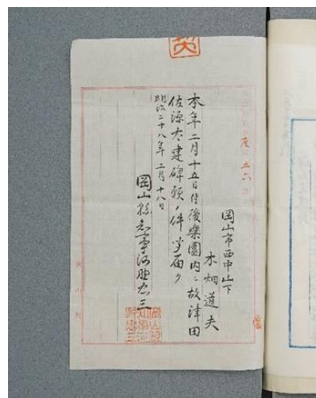 庶五六
岡山市西中山下
木畑道夫
本年二月十五日付後楽園内ニ故津田
佐源太建碑願ノ件
明治二十八年二月十八日
岡山縣知事河野忠三